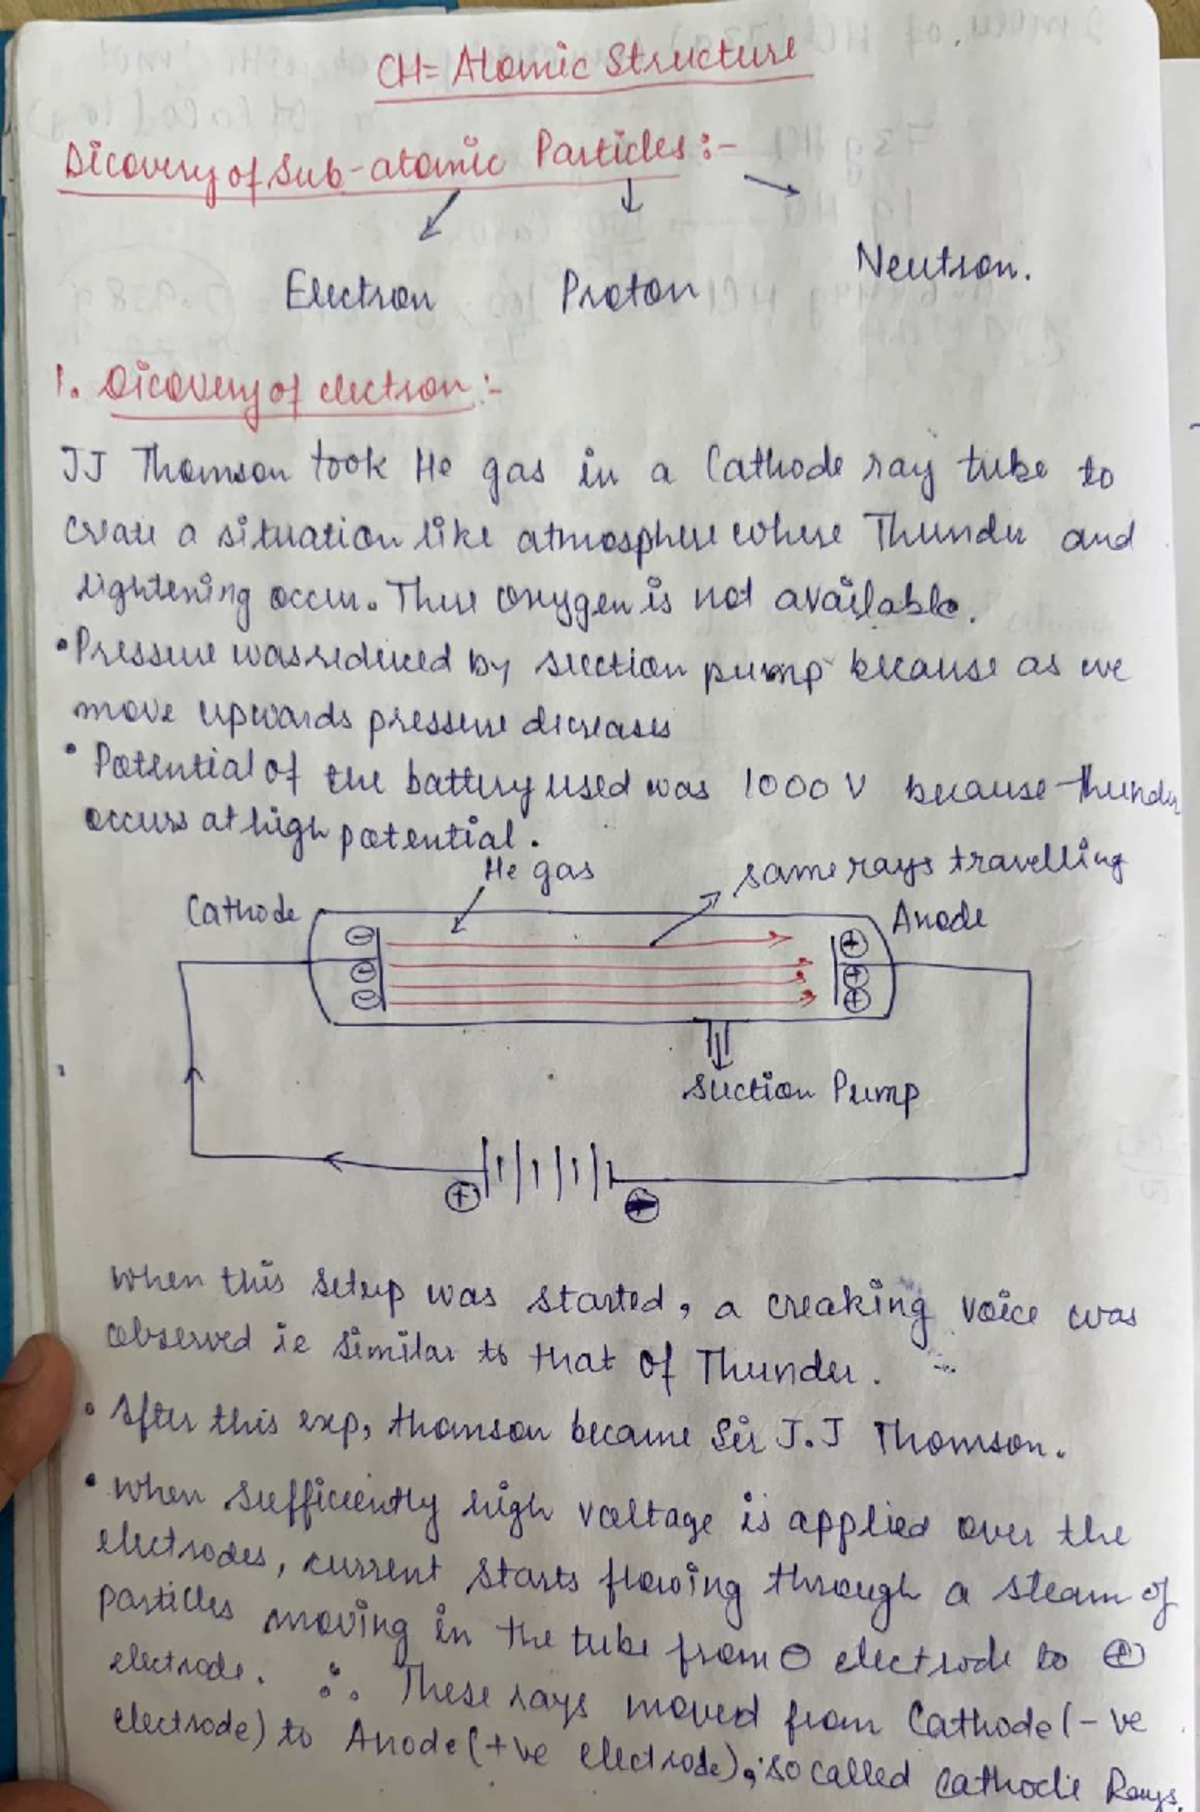 CH= Atomic Structure
Dicovery of Sub-atomic Particles :-
Electron Proton Neutron.
1. Dicovery of electron :-
JJ Thomson took He gas in a Cathode ray tube to
create a situation like atmosphere where Thunder and
lightening occur. There oxygen is not available.
• Pressure was reduced by suction pump because as we
move upwards pressure dicreases
• Potential of the battery used was 1000 V because thunder
occurs at high potential.
He gas
some rays travelling
Cathode
Anode
⊖ ⊕
⊖ ⊕
⊖ ⊕
Suction Pump
⊕
when this setup was started, a creaking voice was
observed ie similar to that of Thunder.
• After this exp, thomson became Sir J.J Thomson.
• When sufficiently high voltage is applied over the
electrodes, current starts flowing through a steam of
particles moving in the tube from ⊖ electrode to ⊕
electrode. ∴ These rays moved from Cathode (-ve
electrode) to Anode (+ve electrode), so called Cathode Rays.